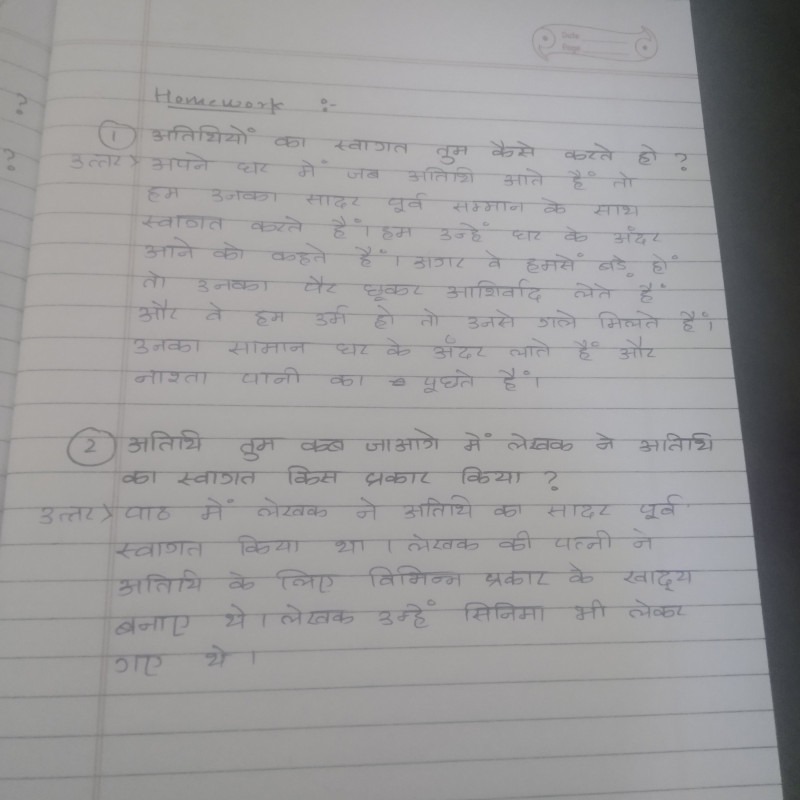 Date
Page
Homework :-
① अतिथियों का स्वागत तुम कैसे करते हो ?
उत्तर> अपने घर में जब अतिथि आते हैं तो
हम उनका सादर पूर्व सम्मान के साथ
स्वागत करते हैं। हम उन्हें घर के अंदर
आने को कहते हैं। अगर वे हमसें बड़े हों
तो उनका पैर छूकर आशिर्वाद लेते हैं
और वे हम उर्म हो तो उनसे गले मिलते हैं।
उनका सामान घर के अंदर लाते हैं और
नाश्ता पानी का पूछते हैं।
② अतिथि तुम कब जाआगे में लेखक ने अतिथि
का स्वागत किस प्रकार किया ?
उत्तर> पाठ में लेखक ने अतिथि का सादर पूर्व
स्वागत किया था । लेखक की पत्नी ने
अतिथि के लिए विभिन्न प्रकार के खाद्य
बनाए थे । लेखक उन्हें सिनिमा भी लेकर
गए थे ।
?
?